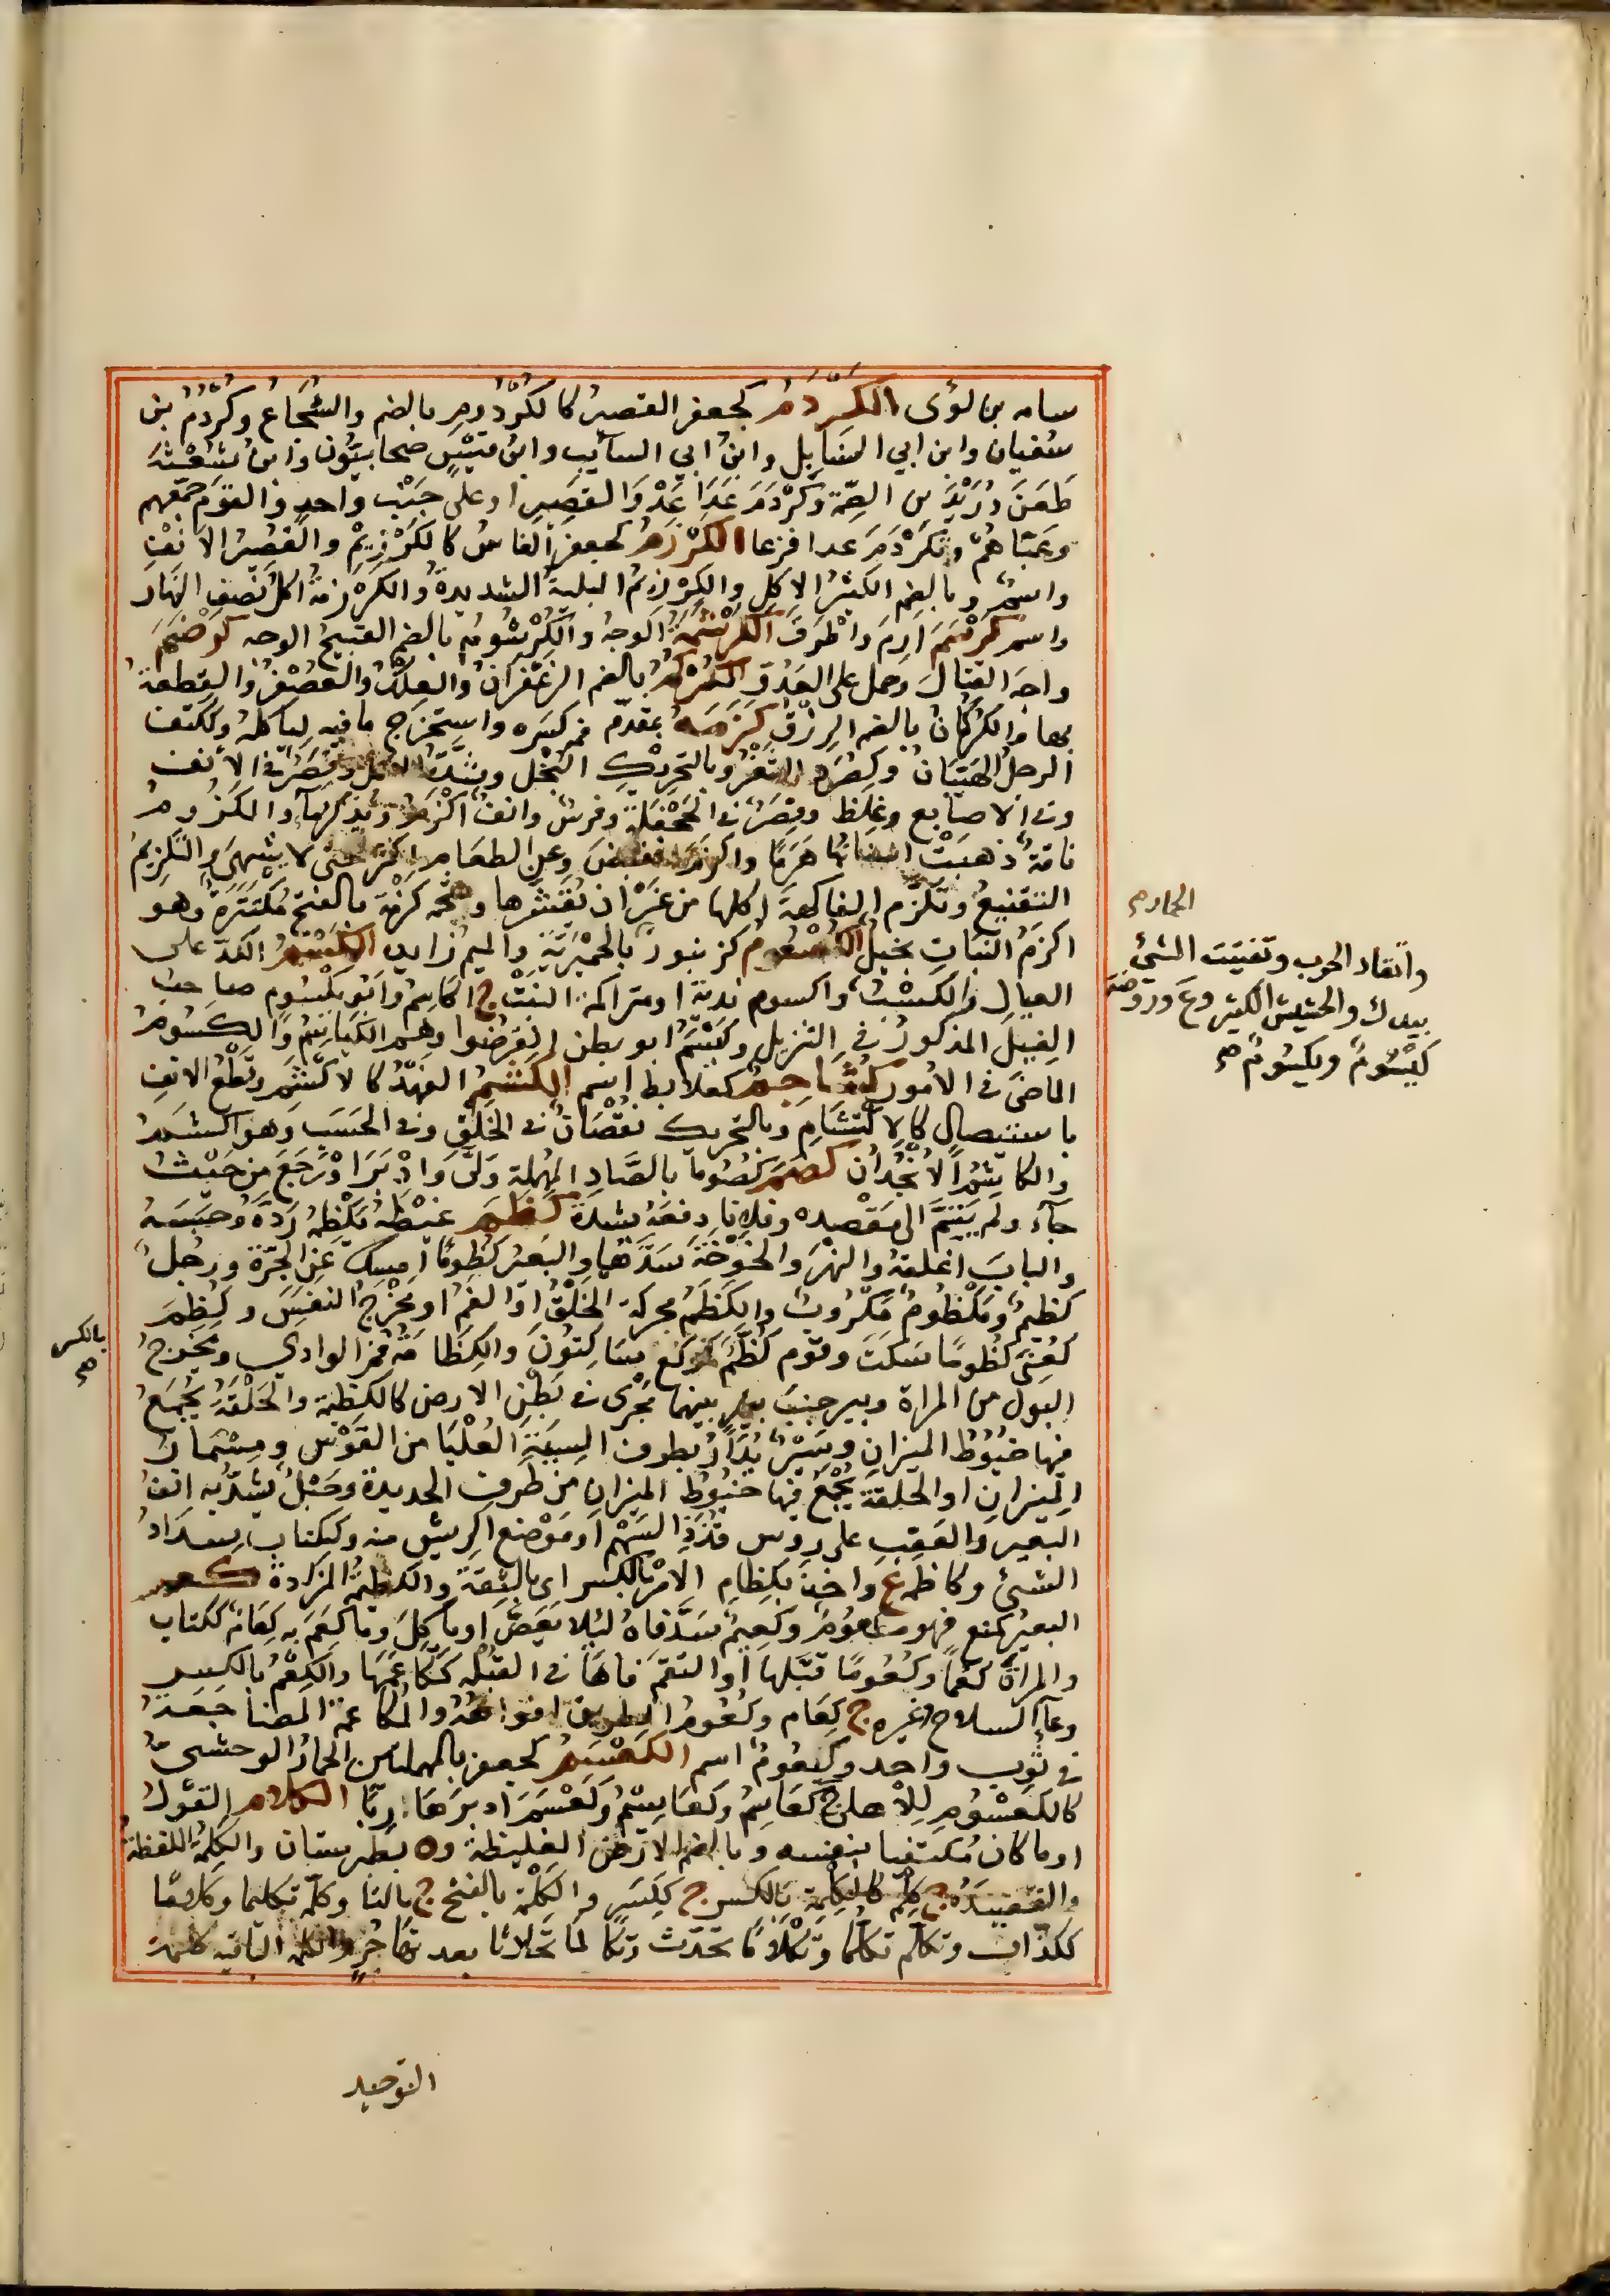 سامه بن لوى الكَرْدَمُ كجعفر القصيرُ كالكُرْدُومِ بالضم والشُجَاعُ وكَرْدَمُ بن
سفيان وابن ابي السنابل وابنُ ابي السايب وابنُ قيْسٍ صحابيُّون وابن شُعْثَةَ
طَعَنَ دُرَيْدَ بن الصِّمّة وكَرْدَمَ عَدَا عَدْوَ القصيرِ او على جَنْبٍ واحدٍ والقومَ جمعهم
وعبّاهُمْ وتكَرْدَمَ عدا فزعا الكَرْزَمُ كجعفر الفاسُ كالكَرْزِيمِ والقصيرُ الانفِ
واسمٌ وبالضم الكثيرُ الاكلِ والكِرْزِمُ البليةُ الشديدةُ والكَرْزمةُ اكلُ نصفِ النهار
واسم كَرْشَمَ ازِمَ واطرَقَ الكَرْشَمَةُ الوجهُ والكُرْشُومُ بالضم القبيحُ الوجه كَرْضَمَ
واجَهَ القتالَ وحمل على العدوِّ الكُرْكُمُ بالضم الزعْفرانُ والعِلْكُ والعُصْفُرُ والقِطعةُ
بهاء والكُرْكُمانُ بالضم الرزقُ كَزَمَهُ بمقدّم فمه كسَره واستخرَج ما فيه لياكله وككتف
الرجلُ الهَيّبانُ وكصُرَدٍ النُّغَرُ وبالتحريكِ البُخل وشدّةُ الاكل وقِصَرٌ في الانف
وفي الاصابع وغِلَظ وقِصَرٌ في الجحفلةِ وفرسٌ وانفٌ اكْزَمُ ويدٌ كزماء والكَزُومُ
ناقةٌ ذهبَتْ اسنانُها هَرَمًا واكزَمَ انقبضَ وعن الطعامِ اكثرَ حتى لا يشتهيَ والتكزيمُ
التقفيعُ وتكزّم الفاكهةَ اكلها من غير ان يقشِرها وشحمه كزمة بالفتح مُكتنِزةٌ وهو
اكزَمُ البَنَانِ بخيلٌ الكُسْعُومُ كزنبورٍ بالحِمْيَرِيّةِ والميم زايد الكَسْمُ الكدّ على
العيالِ والكَسْبُ واكسوم نديّة او متراكمة النبْت ج اكاسِمُ وابو يكسُومٍ صاحب
الفيلِ المذكورُ في التنزيل وكَيْسَمٌ ابو بطن انقرضوا وهم الكياسِمُ والكَسُومُ
الماضي في الامور كُشَاجِمُ كعلابط اسم الكَشْمُ الفهدُ كالاكْشَم وقطْعُ الانفِ
باستيصالٍ كالاكتشامِ وبالتحريك نقصَانٌ في الخلقِ وفي الحسَب وهو اكشمُ
والكاشِمُ الانجُدانُ كصَمَ كُصُوما بالصّادِ المهملة ولّى وادبَرَ او رَجَعَ من حيْثُ
جآء ولم يَتِمَّ الى مقصِده وفلانا دفعَهُ بشدة كظَمَ غيْظَه يَكْظِمُه ردَّهُ وحبَسَه
والبابَ اغلقهُ والنهْرَ والخَوْخةَ سدَّهما والبعيرُ كُظومًا امسك عن الجِرّة ورجُلٌ
كظيمٌ ومَكظومٌ مَكْرُوبٌ والكَظَمُ محركة الحلْقُ او الفمُ او مخرجُ النفَس وكُظِمَ
كعُنِيَ كُظومًا سَكتَ وقوم كُظَّمٌ كرُكّع سَاكِتُونَ والكِظَامَةُ فمُ الوادي ومخرجُ
البول من المراة وبير جنبَ بيرٍ بينهما مَجْرًى في بطْن الارض كالكَظيمة والحلْقةُ يُجمَعُ
فيها خيُوطُ الميزان وسَيْرٌ يُدارُ بطرف السِيَةِ العُلْيا من القوْس ومِسْمارُ
الميزانِ او الحلقةُ يُجمعُ فيها خيُوطُ الميزانِ من طرفِ الحديدة وحَبْلٌ يشدُّ به انفُ
البعيرِ والعقِب على روس قُذَذِ السهْمِ او مَوْضع الريش منه وككتاب سِدادُ
الشئ وكاظمةُ ع واخذ بكِظامِ الامرِ بالكسر اي بالثقةِ والكظيمةُ المزادةُ كعمَ
البعيرَ كمنع فهو مكعُومٌ وكعيمٌ شدَّ فاهُ ليلا يعَضَّ او ياكلَ وما كُعِمَ به كِعَامٌ ككتاب
والمراةَ كعْمًا وكُعُومًا قبّلها او التقَمَ فاهَا في القُبْله ككاعَمَها والكِعْمُ بالكسر
وعآ السلاح وغيره ج كِعَام وكُعُومُ الطريقِ افواهُهُ والمُكاعَمَةُ المضاجعةُ
في ثوب واحد وكيعُومٌ اسم الكَعْسَمُ كجعفر بالمهملتين الحمارُ الوحشيُّ
كالكُعْسُومِ للاهلي ج كعَاسِمُ وكعَاسِيمُ وكَعْسَمَ ادبرَ هَارِبًا الكلامُ القوْلُ
او ما كان مُكتفيا بنفسه وبالضم الارض الغليظةُ وة بطبرستان والكلِمةُ اللفظةُ
والقصيدَةُ ج كَلِمٌ كالكِلْمة بالكسر ج ككِسَرٍ والكَلْمة بالفتح ج بالتا وكلّمه تكليما وكِلّامًا
ككذّاب وتكلّم تكلّمًا وتِكِلّامًا تحدّث وتكالما تحدثا بعد تهاجُرٍ والكلمة الباقية كلمة
التوحيد
واتقاد الحرب وتفتيت الشئ
بيدك والحشيش الكثير وع وروضة
كَيْسُومٌ ويكسُومٌ صح
بالكسر
صح